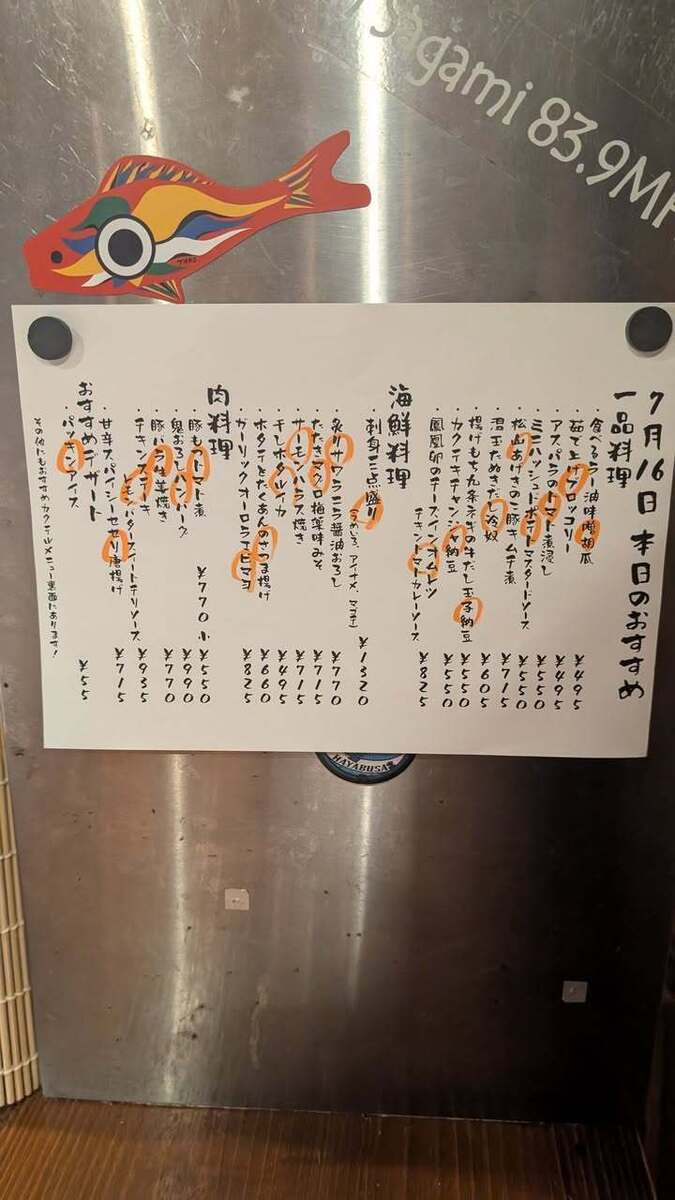 Sagami 83.9MH
TARO
7月16日 本日のおすすめ
一品料理
・食べるラー油味噌胡瓜 ¥495
・茹で上げブロッコリー ¥495
・アスパラのトマト煮浸し ¥550
・ミニハッシュドポテトマスタードソース ¥550
・松山あげきのこ豚キムチ煮 ¥715
・温玉たぬきだし冷奴 ¥605
・揚げもち九条ネギの牛だし玉子納豆
・カクテキチャンジャ納豆 ¥550
・鳳凰卵のチーズインオムレツ
チキントマトカレーソース ¥825
海鮮料理
・刺身三点盛り ¥1320
・炙りサワラニラ醤油おろし ¥770
・たたきマグロ梅薬味みそ ¥715
・サーモンハラス焼き ¥715
・干しホタルイカ ¥495
・ホタテとたくあんのさつま揚げ ¥660
・ガーリックオーロラエビマヨ ¥825
肉料理
・豚もつトマト煮 ¥770 小¥550
・鬼おろしハンバーグ ¥990
・豚バラ生姜焼き ¥770
・チキンステーキ
レモンバタースイートチリソース ¥935
・甘辛スパイシーせせり唐揚げ ¥715
おすすめデザート
・パッキンアイス ¥55
その他にもおすすめカクテルメニュー裏面にあります!
HAYABUSA